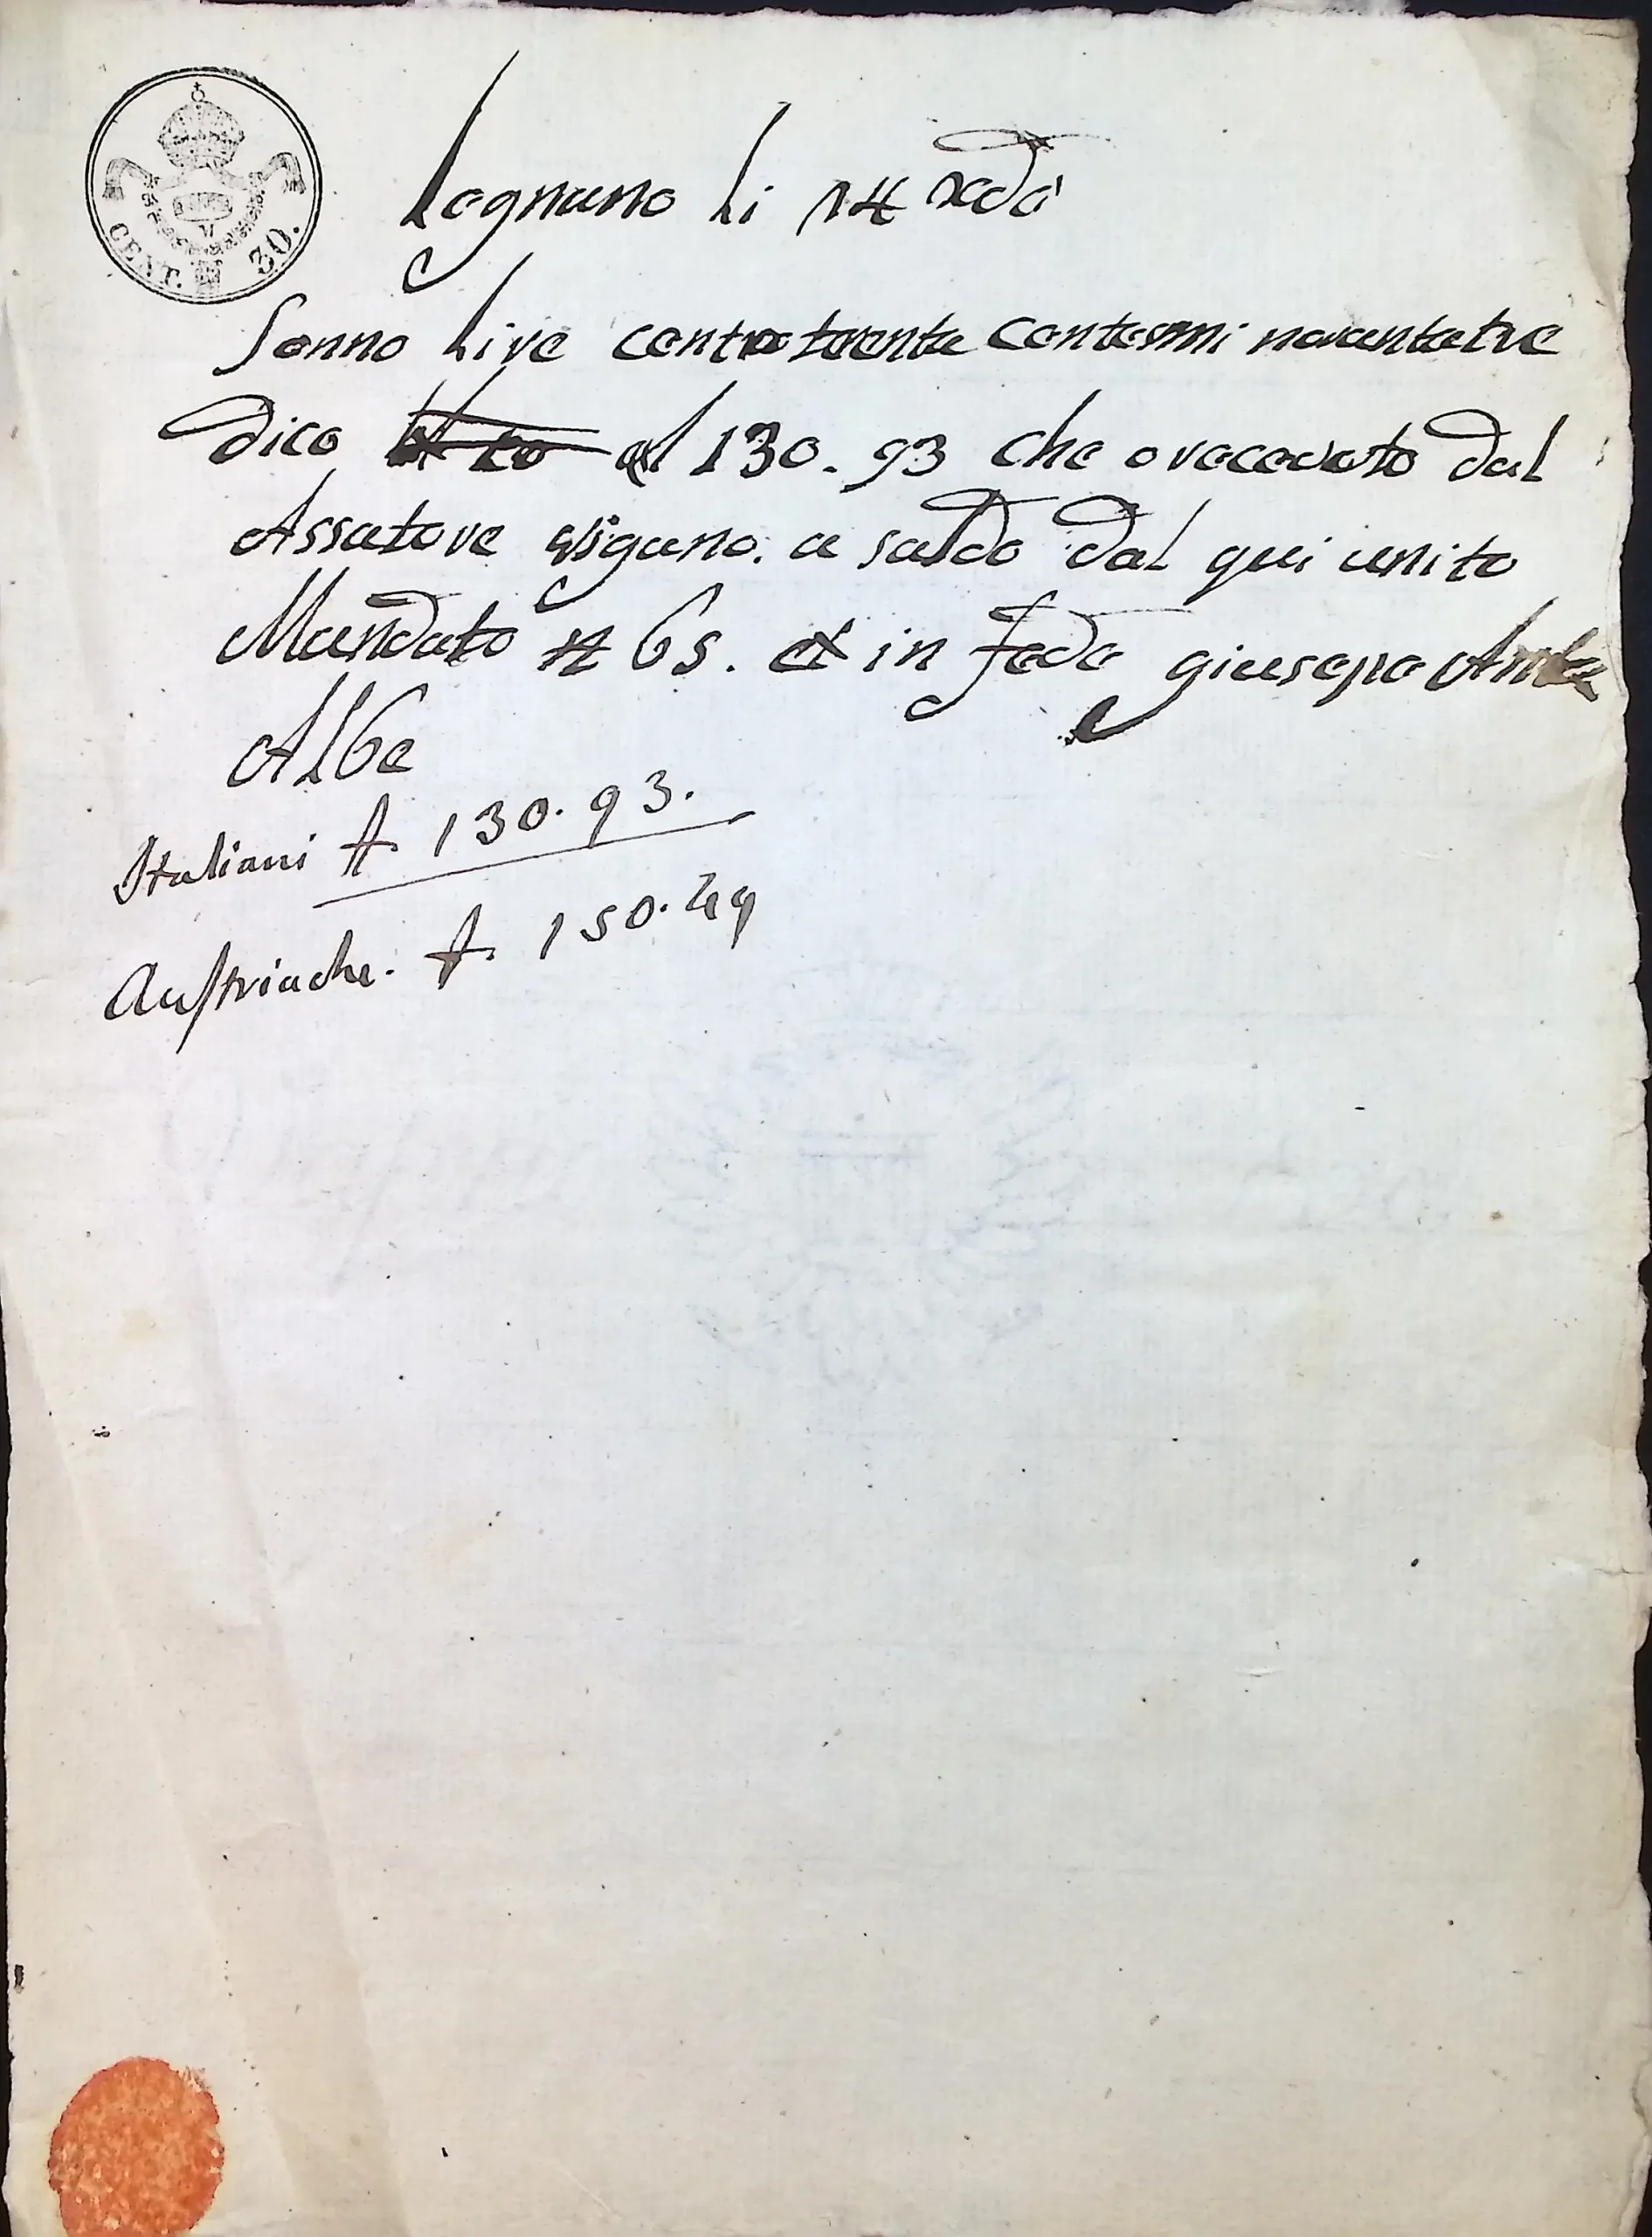 CENT. 30.
Legnano Li 14
Sonno Lire cento trenta Centesmi novantatre
dico 130.93 che o recevoto dal
Assatore a saldo dal qui unito
Mandato N 65. in fede giusepe
Albe
Italiani £. 130.93.
Austriache. £. 150.49